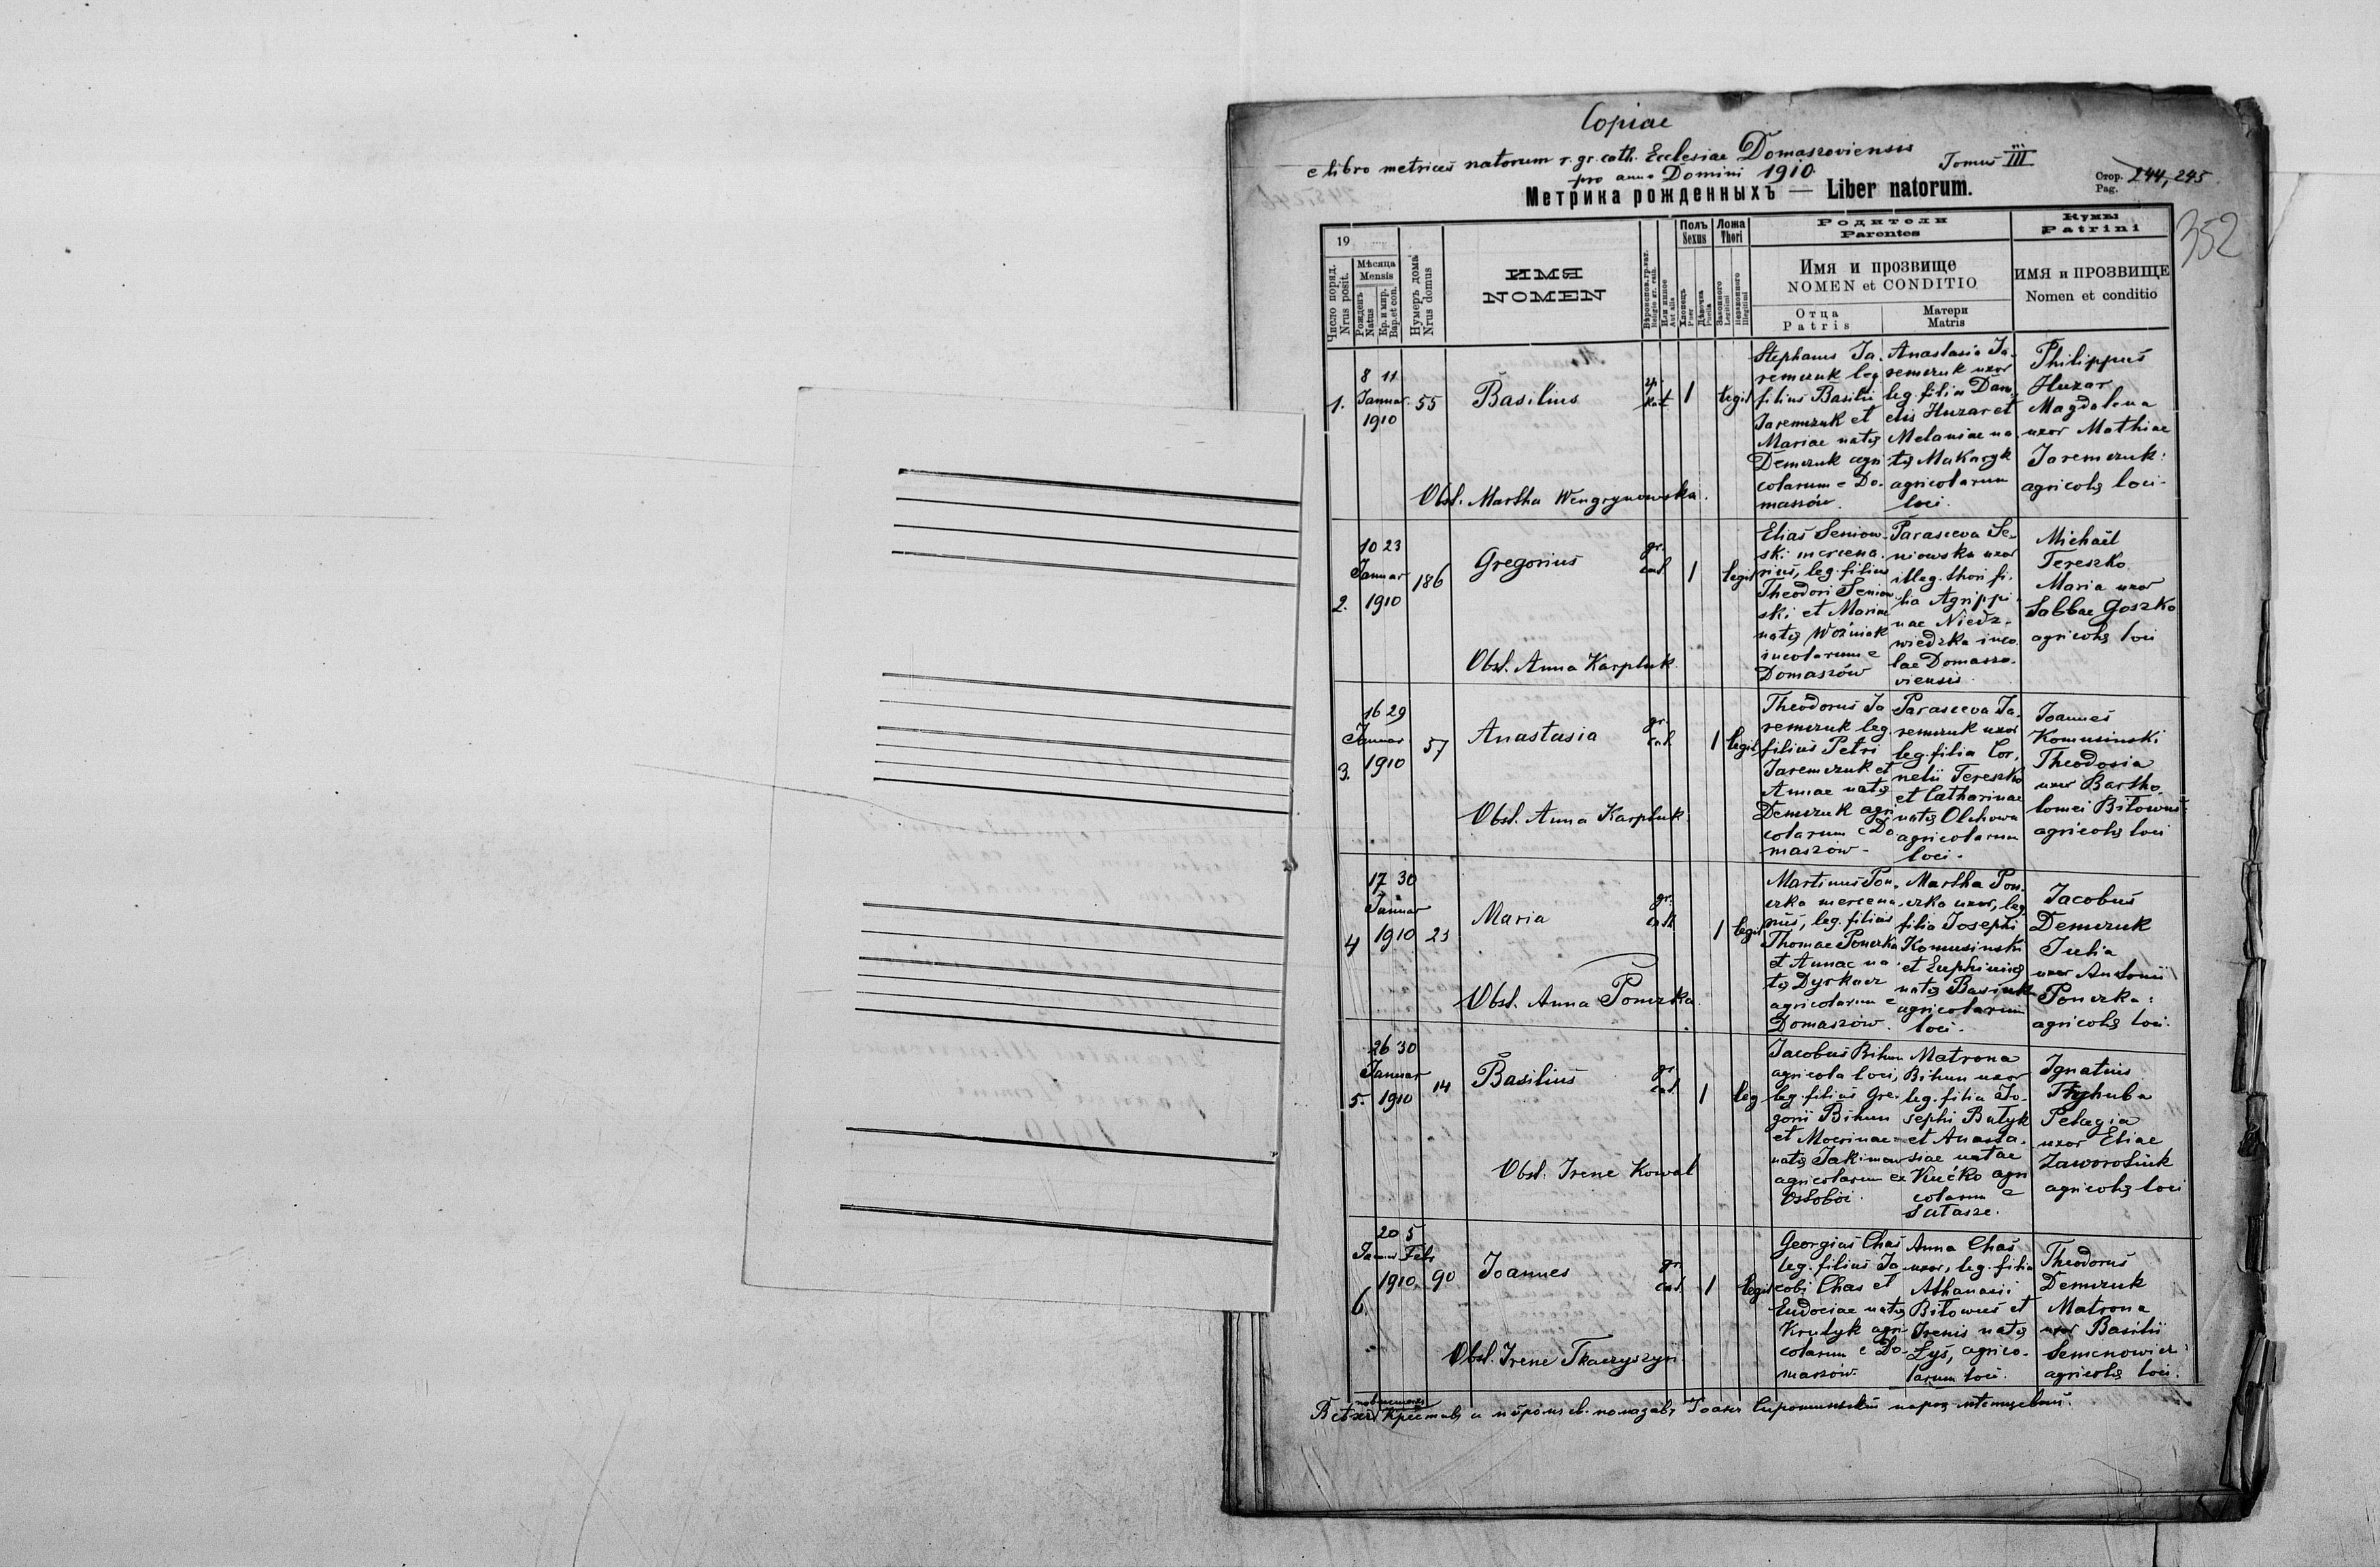 Copiae
e libro metrices natorum r. gr. cath. Ecclesiae Domaszoviensis
pro anno Domini 1910.
Tomus III
Метрика рожденныхъ — Liber natorum.
Стор. Pag. 244, 245
352
19
Число поряд. Nrus posit.
Мѣсяца Mensis
Рожденъ Natus
Кр. и мир. Bap. et con.
Нумеръ дома Nrus domus
ИМЯ
NOMEN
Полъ Sexus
Хлопецъ Puer
Дѣвочка Puella
Ложа Thori
Законного Legitimi
Незаконного Illegitimi
Родители
Parentes
Имя и прозвище
NOMEN et CONDITIO
Отца
Patris
Матери
Matris
Кумы
Patrini
ИМЯ и ПРОЗВИЩЕ
Nomen et conditio
1.
8 11
Januar.
1910
55
Basilius
1
legit
Stephanus Ja-
remczuk leg
filius Basilii
Jaremczuk et
Mariae natę
Demczuk agri
colarum e Do-
maszów.
Anastasia Ja-
remczuk uxor
leg. filia Dani
elis Huzar et
Melaniae na
tę Makaryk
agricolarum
loci.
Philippus
Huzar
Magdalena
uxor Mathiae
Jaremczuk:
agricolę loci-
Obst. Martha Wengrynowska.
2.
10 23
Januar
1910
186
Gregorius
gr.
cat.
1
legit
Elias Seniow-
ski mercena-
rius, leg. filius
Theodori Seniow
ski et Mariae
natę Woźniak
incolarum e
Domaszów
Parasceva Se-
niowska uxor
illeg. thori fi-
lia Agrippi-
nae Niedz-
wiedzka inco
lae Domaszo-
viensis
Michaël
Tereszko
Maria uxor
Sabbae Goszko
agricolę loci
Obst. Anna Karpluk
3.
16 29
Januar
1910
57
Anastasia
gr.
cat.
1
legit
Theodorus Ja
remczuk leg.
filius Petri
Jaremczuk et
Annae natę
Demczuk agri
colarum e Do
maszów-
Parasceva Ja-
remczuk uxor
leg. filia Cor-
nelii Tereszko
et Catharinae
natę Olchowa
agricolarum
loci-
Joannes
Komusinski
Theodosia
uxor Bartho
lomei Biłowus:
agricolę loci
Obst. Anna Karpluk.
4
17 30
Januar
1910
23
Maria
gr.
cath.
1
legit
Martinus Pon-
czka mercena-
rius, leg. filius
Thomae Ponczka
et Annae na-
tę Dyrkacz
agricolarum e
Domaszów.
Martha Pon-
czka uxor, leg
filia Josephi
Komusinski
et Euphimię
natę Basiuk
agricolarum
loci-
Jacobus
Demczuk
Julia
uxor Antonii
Ponczka:
agricolę loci.
Obst. Anna Ponczka.
5.
26 30
Januar
1910
14
Basilius
gr
cat.
1
leg
Jacobus Bihun
agricola loci,
leg. filius Gre-
gorii Bihun
et Mocrinae
natę Jakimow
agricolarum ex
Matrona
Bihun uxor
leg. filia Jo-
sephi Butyk
et Anasta-
siae natae
Kućko agri
colarum e
Sałasze.
Ignatius
Pelagia
uxor Eliae
Zaworotiuk
agricolę loci
Obst. Irene Kowal
6.
20 5
Januar Febr
1910.
90
Joannes
gr.
cat.
1
legit
Georgius Chaś
leg. filius Ja
cobi Chas et
Eudociae natę
Krutyk agri
colarum e Do-
maszów.
Anna Chaś
uxor, leg. filia
Athanasii
Biłowus et
Irenis natę
Łyś, agrico-
larum loci.
Theodorus
Demczuk
Matrona
uxor Basilii
Semenowicz:
agricolę loci.
Obst. Irene Tkaczyszyn.